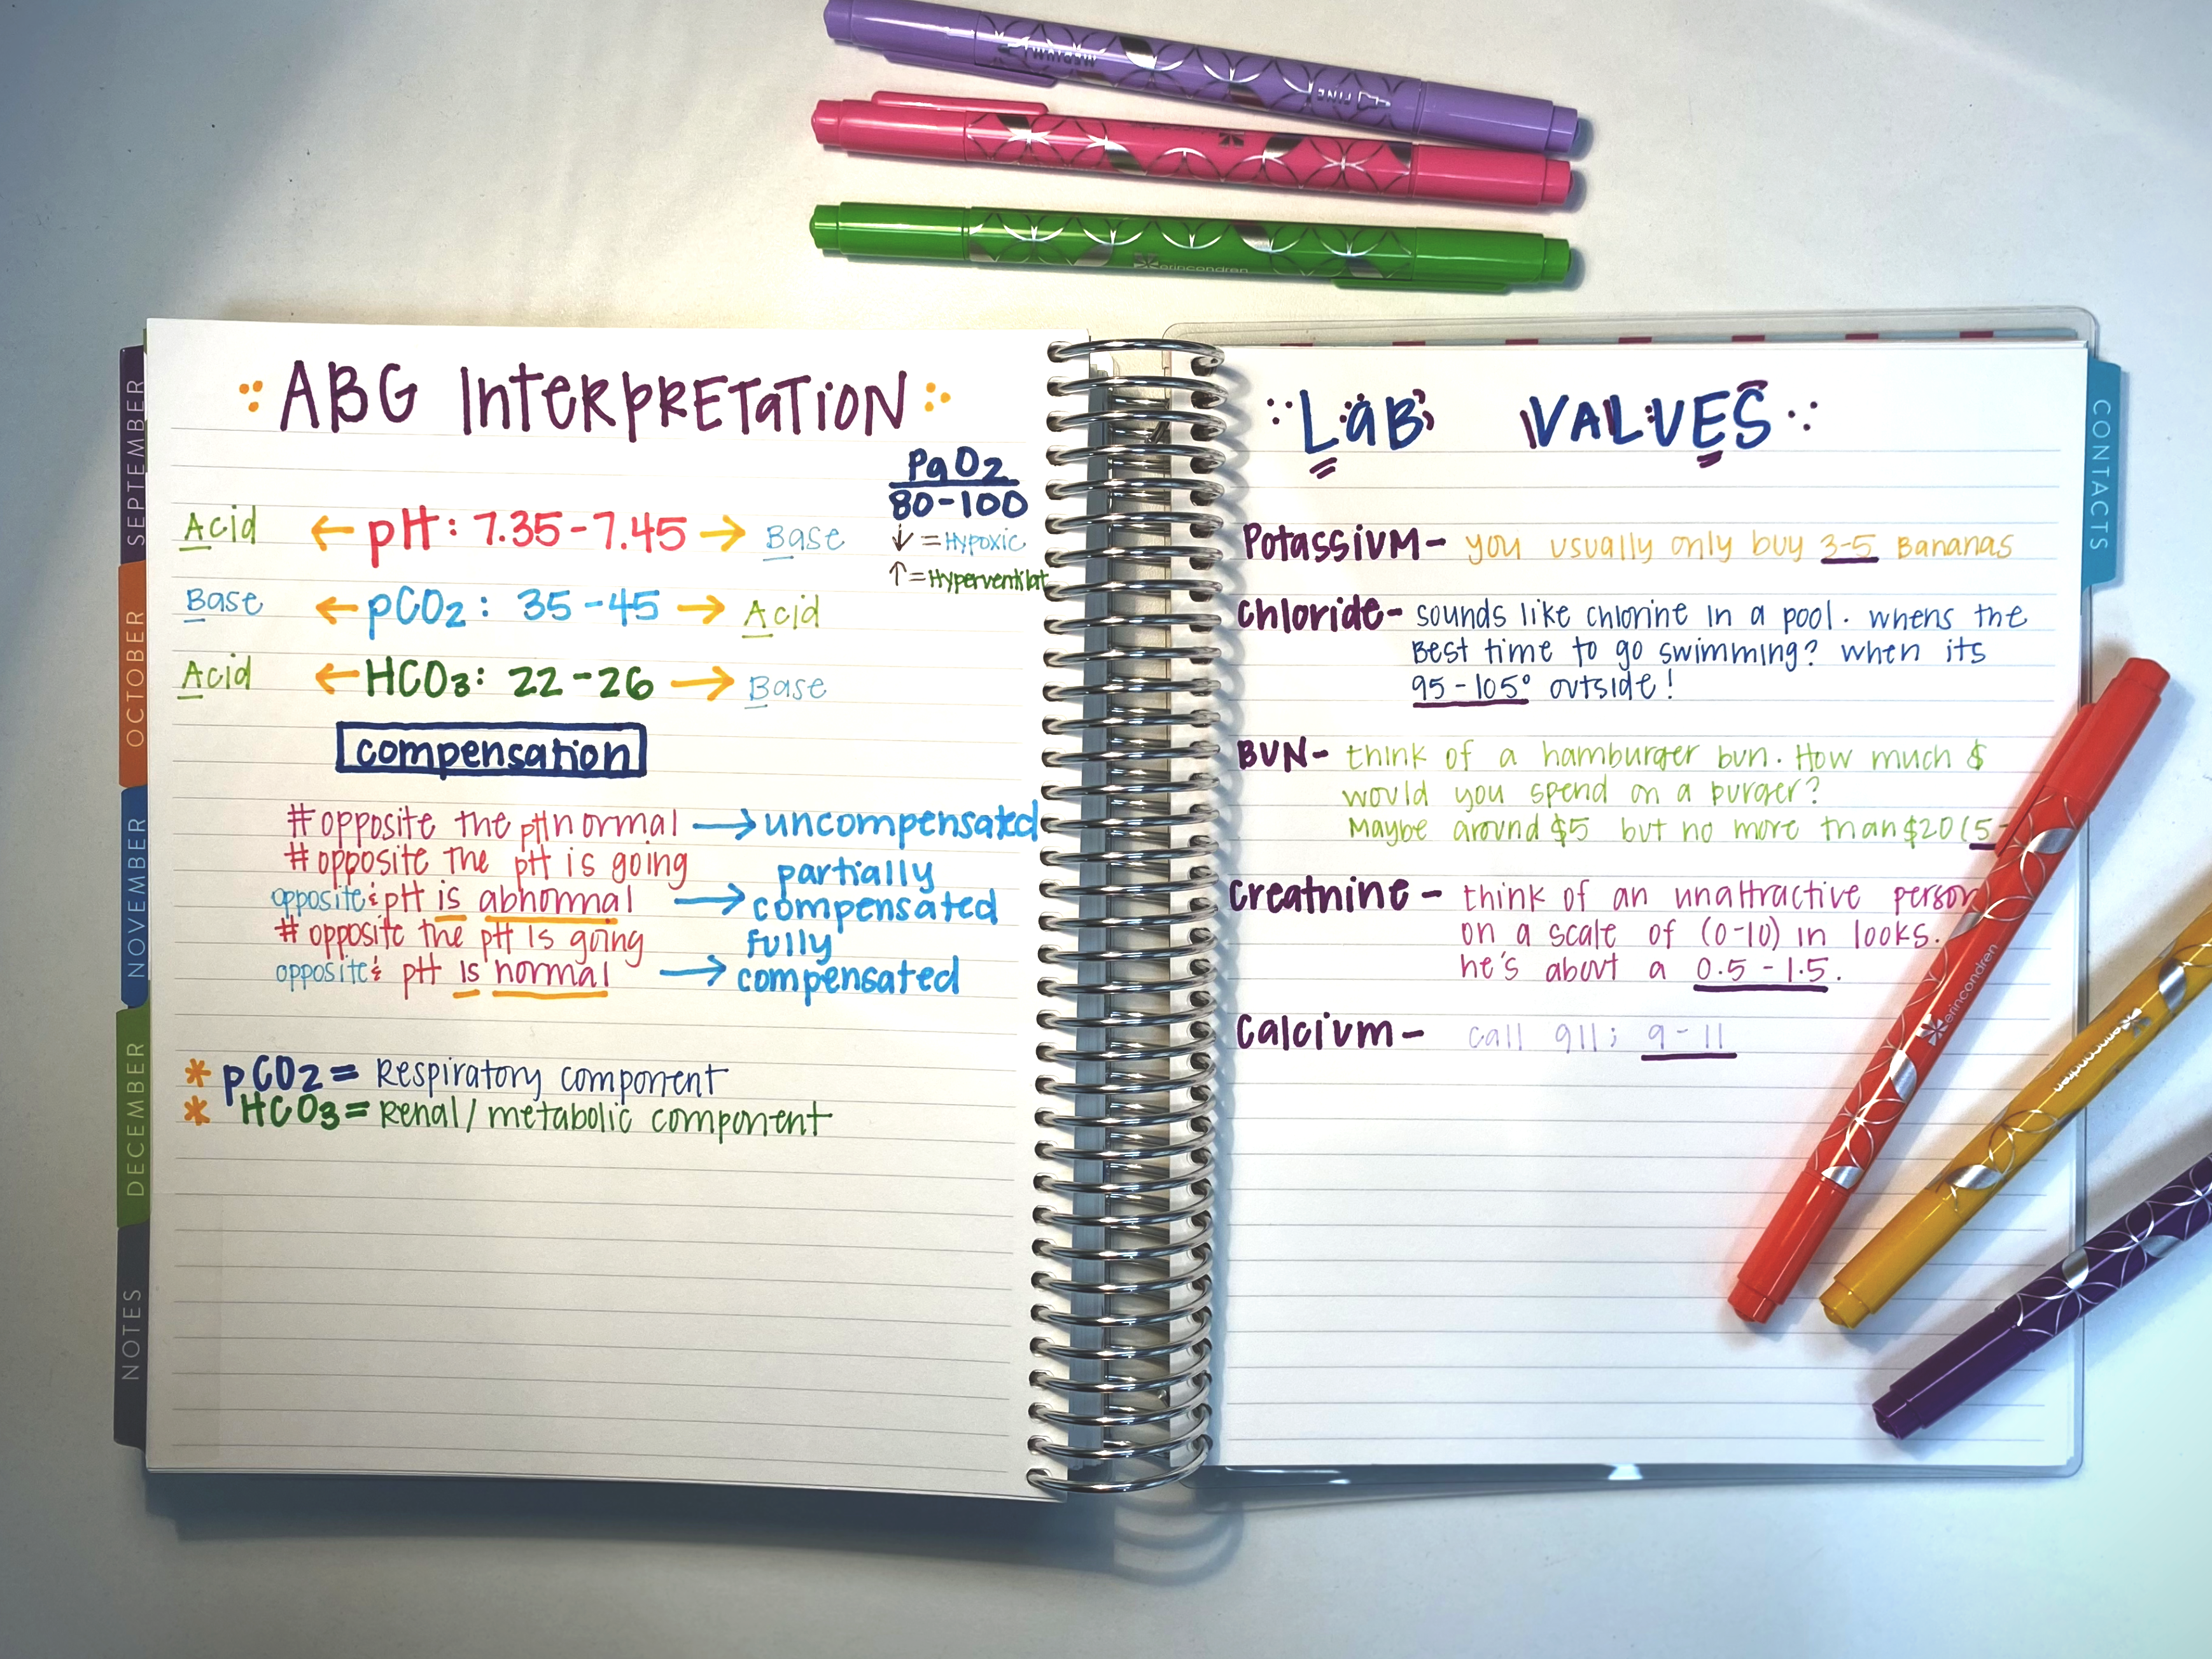 MEDIUM
FINE
erincondren
SEPTEMBER
OCTOBER
NOVEMBER
DECEMBER
NOTES
ABG InteRpRETaTiON
PaO2
80-100
↓ = Hypoxic
↑ = Hyperventilat
Acid ← pH: 7.35-7.45 → Base
Base ← pCO2: 35-45 → Acid
Acid ← HCO3: 22-26 → Base
compensation
# opposite the pH normal → uncompensated
# opposite the pH is going
opposite & pH is abnormal → partially compensated
# opposite the pH is going
opposite & pH is normal → fully compensated
* pCO2 = Respiratory component
* HCO3 = Renal/metabolic component
LaB VALVES
CONTACTS
Potassium - you usually only buy 3-5 Bananas
chloride - sounds like chlorine in a pool. whens the
Best time to go swimming? when its
95-105° outside!
BUN - think of a hamburger bun. How much $
would you spend on a burger?
Maybe around $5 but no more than $20 (5-
creatnine - think of an unattractive person
on a scale of (0-10) in looks.
he's about a 0.5-1.5.
calcium - call 911; 9-11
erincondren
erincondren